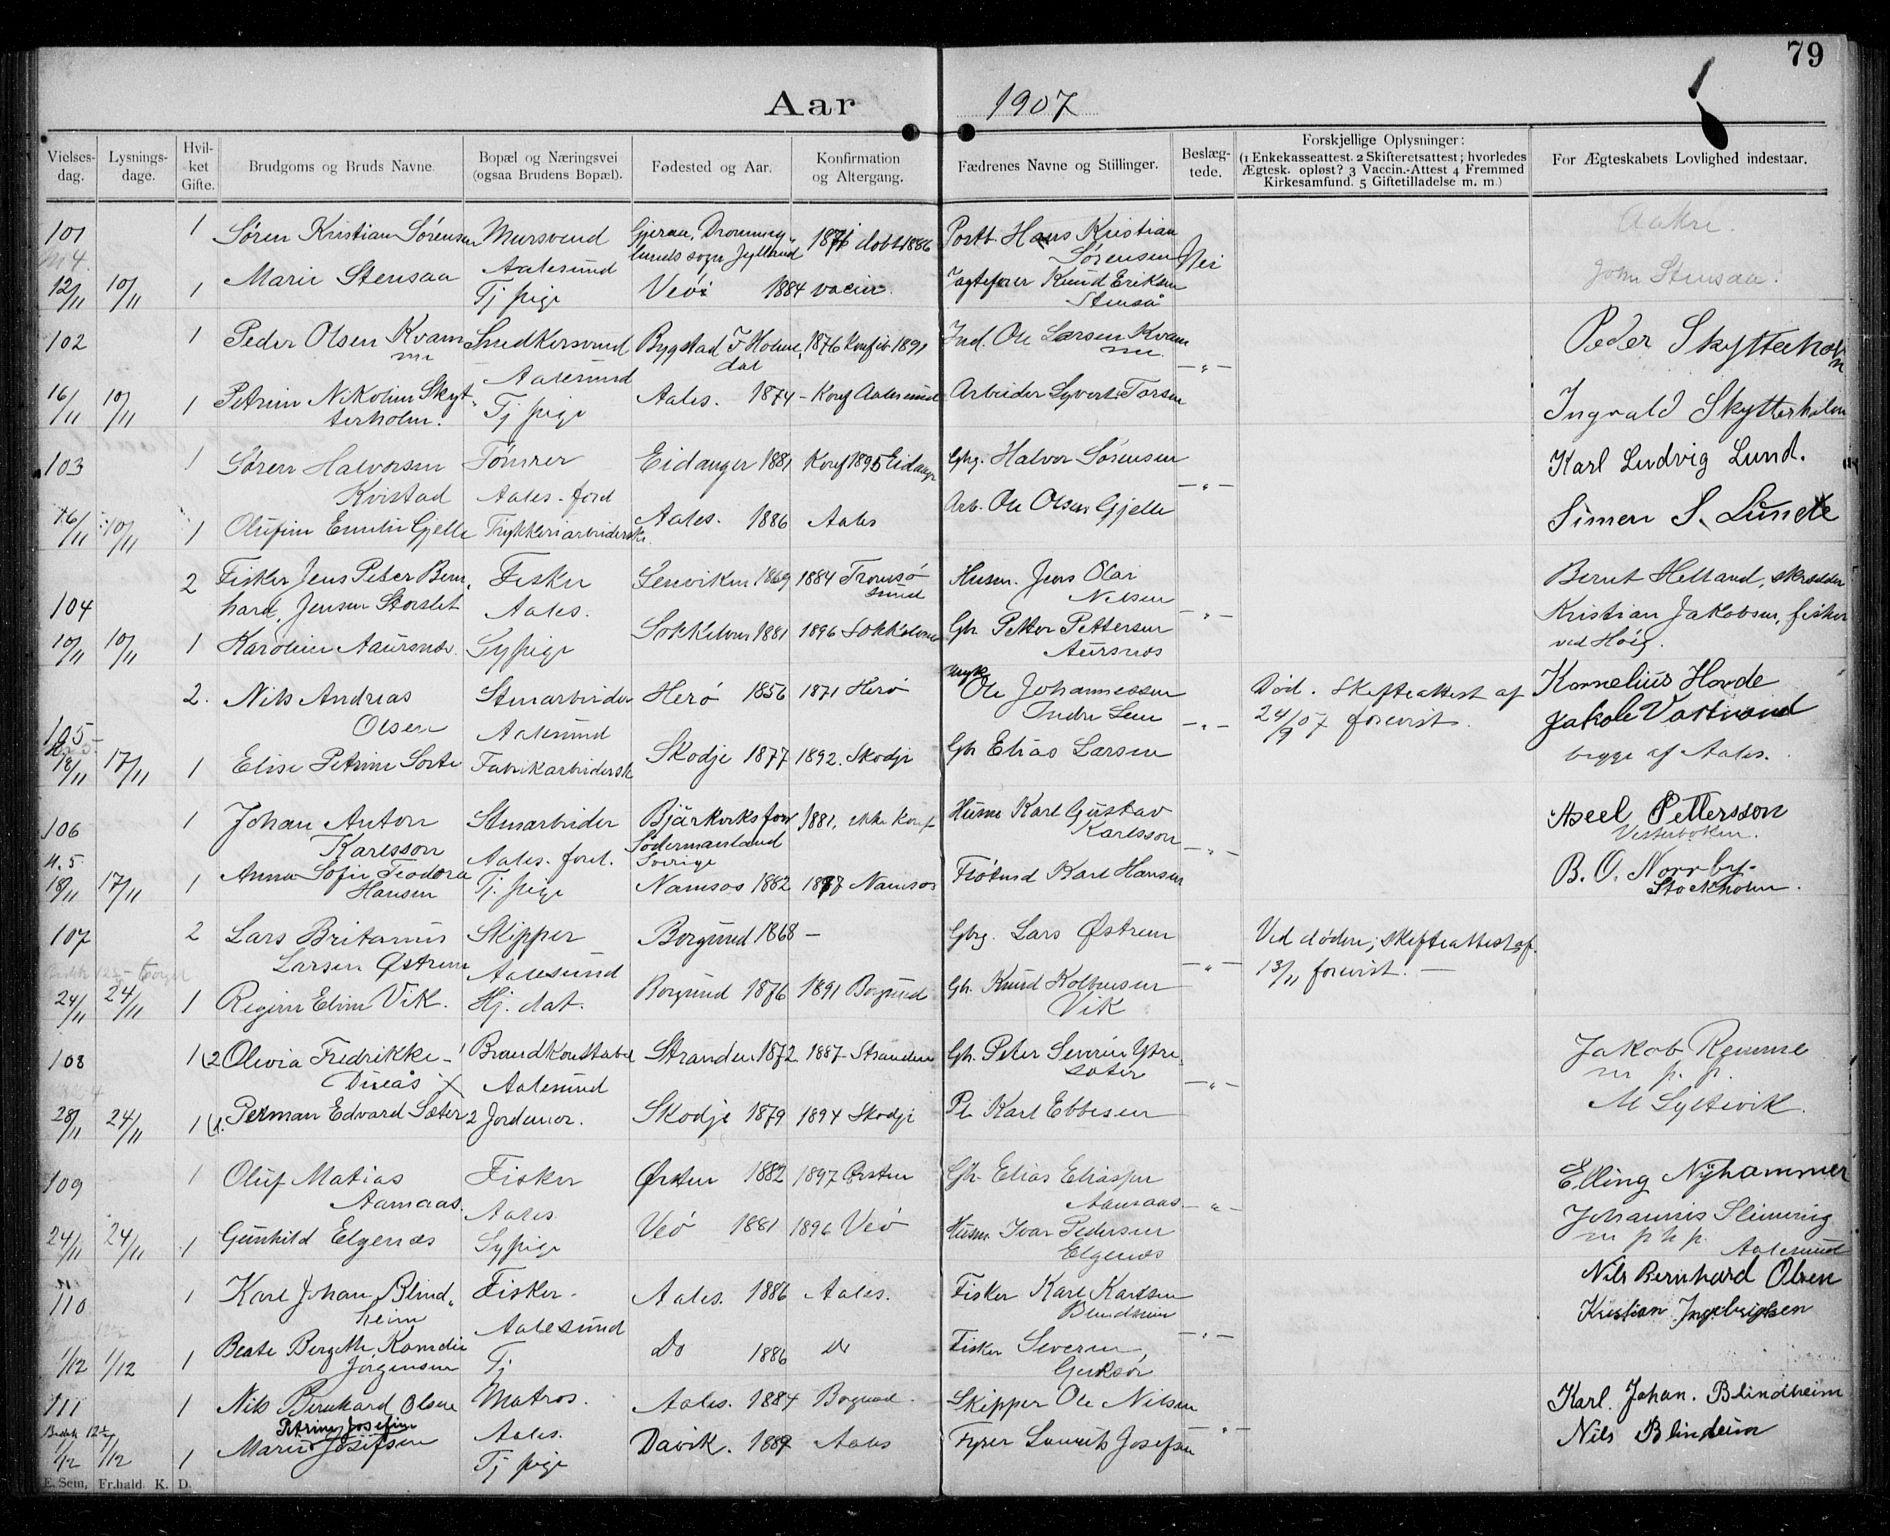 79
Aar 1907
Vielses-dag. Lysnings-dage. Hvil-ket Gifte. Brudgoms og Bruds Navne. Bopæl og Næringsvei (ogsaa Brudens Bopæl). Fødested og Aar. Konfirmation og Altergang. Fædrenes Navne og Stillinger. Beslæg-tede. Forskjellige Oplysninger: (1 Enkekasseattest. 2 Skifteretsattest; hvorledes Ægtesk. opløst? 3 Vaccin.-Attest 4 Fremmed Kirkesamfund. 5 Giftetilladelse m. m.) For Ægteskabets Lovlighed indestaar.
101 1 Søren Kristian Sørensen Mursvend Gjeraa, Dronning- 1871 døbt 1886 Postb. Hans Kristian Aakre.
Aalesund lunds sogn Jylland Sørensen Nei
12/11 10/11 1 Marie Stensaa Tj pige Veö 1884 Jagtefører Knud Eriksen John Stensaa.
Stenså
102 1 Peder Olsen Kvam Snedkersvend Bygstad I Holme, 1876 Konf 1891 Ind. Ole Larsen Kvam Peder Skytterholm
me Aalesund dal me -"-
16/11 10/11 1 Petrine Nikoline Skyt Tj pige Aales. 1874 - Konf Aalesund Arbeider Syvert Torsen Ingvald Skytterholm
terholm.
103 1 Søren Halvorsen Tømrer Eidanger 1881 Konf 1895 Eidanger Gbrg. Halvor Sørensen Karl Ludvig Lund.
Kvistad Aales. ford -"-
16/11 10/11 1 Olufine Emilie Gjelle Trykkeriarbeiderske. Aales. 1886 Aales Arb. Ole Olsen Gjelle Simen S. Lunde
104 2 Fisker Jens Peter Bern, Fisker Senviken 1869 1884 Tromsö Husm. Jens Olai Bernt Helland, skrædder
hard, Jensen Storslet Aales. sund Nilsen -"- Kristian Jakobsen, fisker
10/11 10/11 1 Karoline Aaursnæs. Sypige Sokkelven 1881 1896 Sokkelven Gbr Petter Pettersen ved Høig.
Aursnæs
105 2. Nils Andreas Stenarbeider Herö 1856 1871 Herö Ole Johannessen Død. Skifteattest af Kornelius Hovde
Olsen Aalesund Indre Lem -"- 24/9 07 forevist. Jakob Vatne
18/11 17/11 1 Elise Petrine Sorte Fabrikarbeidersk Skodje 1877 1892. Skodje Gbr Elias Larsen begge af Aales.
106 1 Johan Anton Stenarbeider Bjärkviks förs 1881, ikke konf Husm Karl Gustav Axel Pettersson
Karlsson Aales. ford. Södermanland Karlsson -"- Vesterboken.
4.5 Sverige
18/11 17/11 1 Anna Sofie Teodora Tj. pige Namsos 1882 1897 Namsos Fløtmd Karl Hansen B. O. Norrby-
Hansen Stockholm.
107 2 Lars Britanus Skipper Borgund 1868 - Gbrg. Lars Østrem Ved døden; skifteattest af
Larsen Østrem Aalesund -"- 13/11 forevist. -
24/11 24/11 1 Regine Eline Vik. Hj. dat. Borgund 1876 1891 Borgund Gbr. Knud Kolbensen
Vik
108 1 (2 Olevia Fredrikke - 1 Brandkonstabel Stranden 1872 1887 Stranden Gbr. Peter Severin Ytre Jakob Remme
Dueås X Aalesund sæter -"- m. p. p.
28/11 24/11 1 (1. Perman Edvard Sæter 2 Jordemor. Skodje 1879 1894 Skodje Pl. Karl Ebbesen M Syltevik.
109 1 Oluf Matias Fisker Ørsten 1882 1897 Ørsten Gbr. Elias Eliassen Elling Nyhammer
Aamaas. Aales. Aamaas. -"- Johannes Slinning
24/11 24/11 1 Gunhild Elgenæs Sypige Veö 1881 1896 Veö Husm. Ivar Pedersen m p h p. Aalesund
Elgenæs
110 1 Karl Johan Blind, Fisker- Aales. 1886 Aales. Fisker Karl Karlsen Nils Bernhard Olsen
heim Aalesund Blindheim -"- Kristian Ingebrigtsen
1/12 1/12 1 Beate Bergitte Kornelie Tj Do 1886 Do Fisker Severin,
Jørgensen Gjuksør
111 1 Nils Bernhard Olsen Matros. Aales. 1884 Borgund. Skipper Ole Nilsen Karl. Johan. Blindheim
Petrine Josefine Aales. -"-
1/12 1/12 1 Marie Josefsen Tj pige Davik. 1889 Aales Fyrer Laurits Josefsen Nils Blindheim
E. Sem, Fr.hald. K. D.